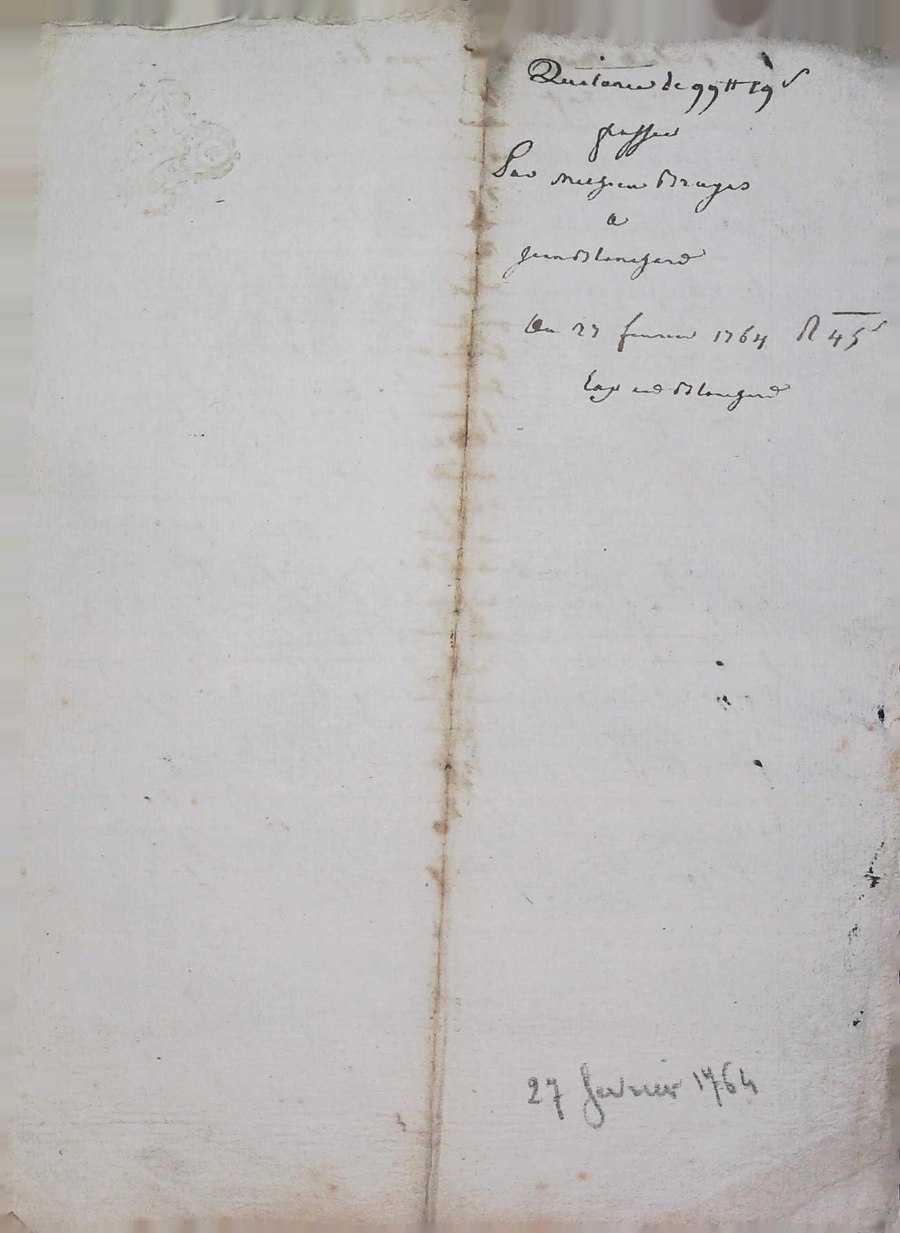 Quitance de 99 ₶ 19 s
passée
Par Bruges
a
Jean Blanchard
Du 27 fevrier 1764 R 45 s
Blanchard
27 fevrier 1764